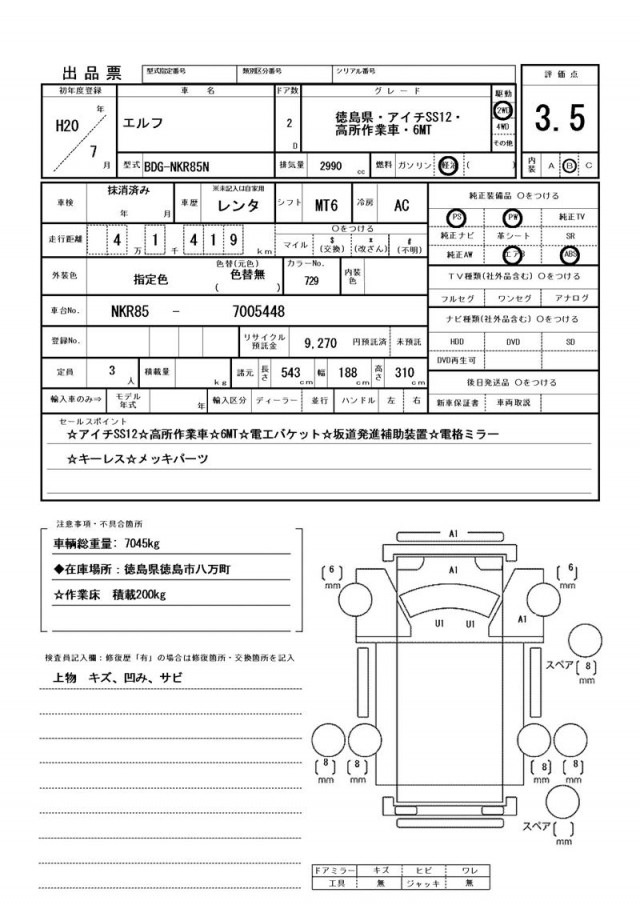 出品票
型式指定番号
類別区分番号
シリアル番号
評価点
初年度登録
車 名
ドア数
グレード
駆動
H20
年
7
月
エルフ
2
D
徳島県・アイチSS12・
高所作業車・6MT
2WD
4WD
その他
3.5
型式
BDG-NKR85N
排気量
2990
cc
燃料
ガソリン
軽油
( )
内装
A
B
C
車検
抹消済み
年 月
車歴
※未記入は自家用
レンタ
シフト
MT6
冷房
AC
純正装備品 ○をつける
PS
PW
純正TV
走行距離
4
万
1
千
4
1
9
km
○をつける
マイル
$
(交換)
*
(改ざん)
#
(不明)
純正ナビ
革シート
SR
純正AW
エアB
ABS
外装色
指定色
色替(元色)
色替無
( )
カラーNo.
729
内装色
TV種類(社外品含む) ○をつける
フルセグ
ワンセグ
アナログ
車台No.
NKR85 - 7005448
ナビ種類(社外品含む) ○をつける
登録No.
リサイクル
預託金
9,270
円預託済
未預託
HDD
DVD
SD
DVD再生可
定員
3
人
積載量
kg
諸元
長さ
543
cm
幅
188
cm
高さ
310
cm
後日発送品 ○をつける
輸入車のみ⇒
モデル
年式
年
輸入区分
ディーラー
並行
ハンドル
左
右
新車保証書
車両取説
セールスポイント
☆アイチSS12☆高所作業車☆6MT☆電工バケット☆坂道発進補助装置☆電格ミラー
☆キーレス☆メッキパーツ
注意事項・不具合箇所
車輌総重量: 7045kg
◆在庫場所：徳島県徳島市八万町
☆作業床 積載200kg
検査員記入欄：修復歴「有」の場合は修復箇所・交換箇所を記入
上物 キズ、凹み、サビ
A1
A1
U1
U1
A1
[6]
mm
[6]
mm
スペア[8]
mm
[8]
mm
[8]
mm
[8]
mm
[8]
mm
スペア[ ]
mm
ドアミラー
キズ
ヒビ
ワレ
工具
無
ジャッキ
無